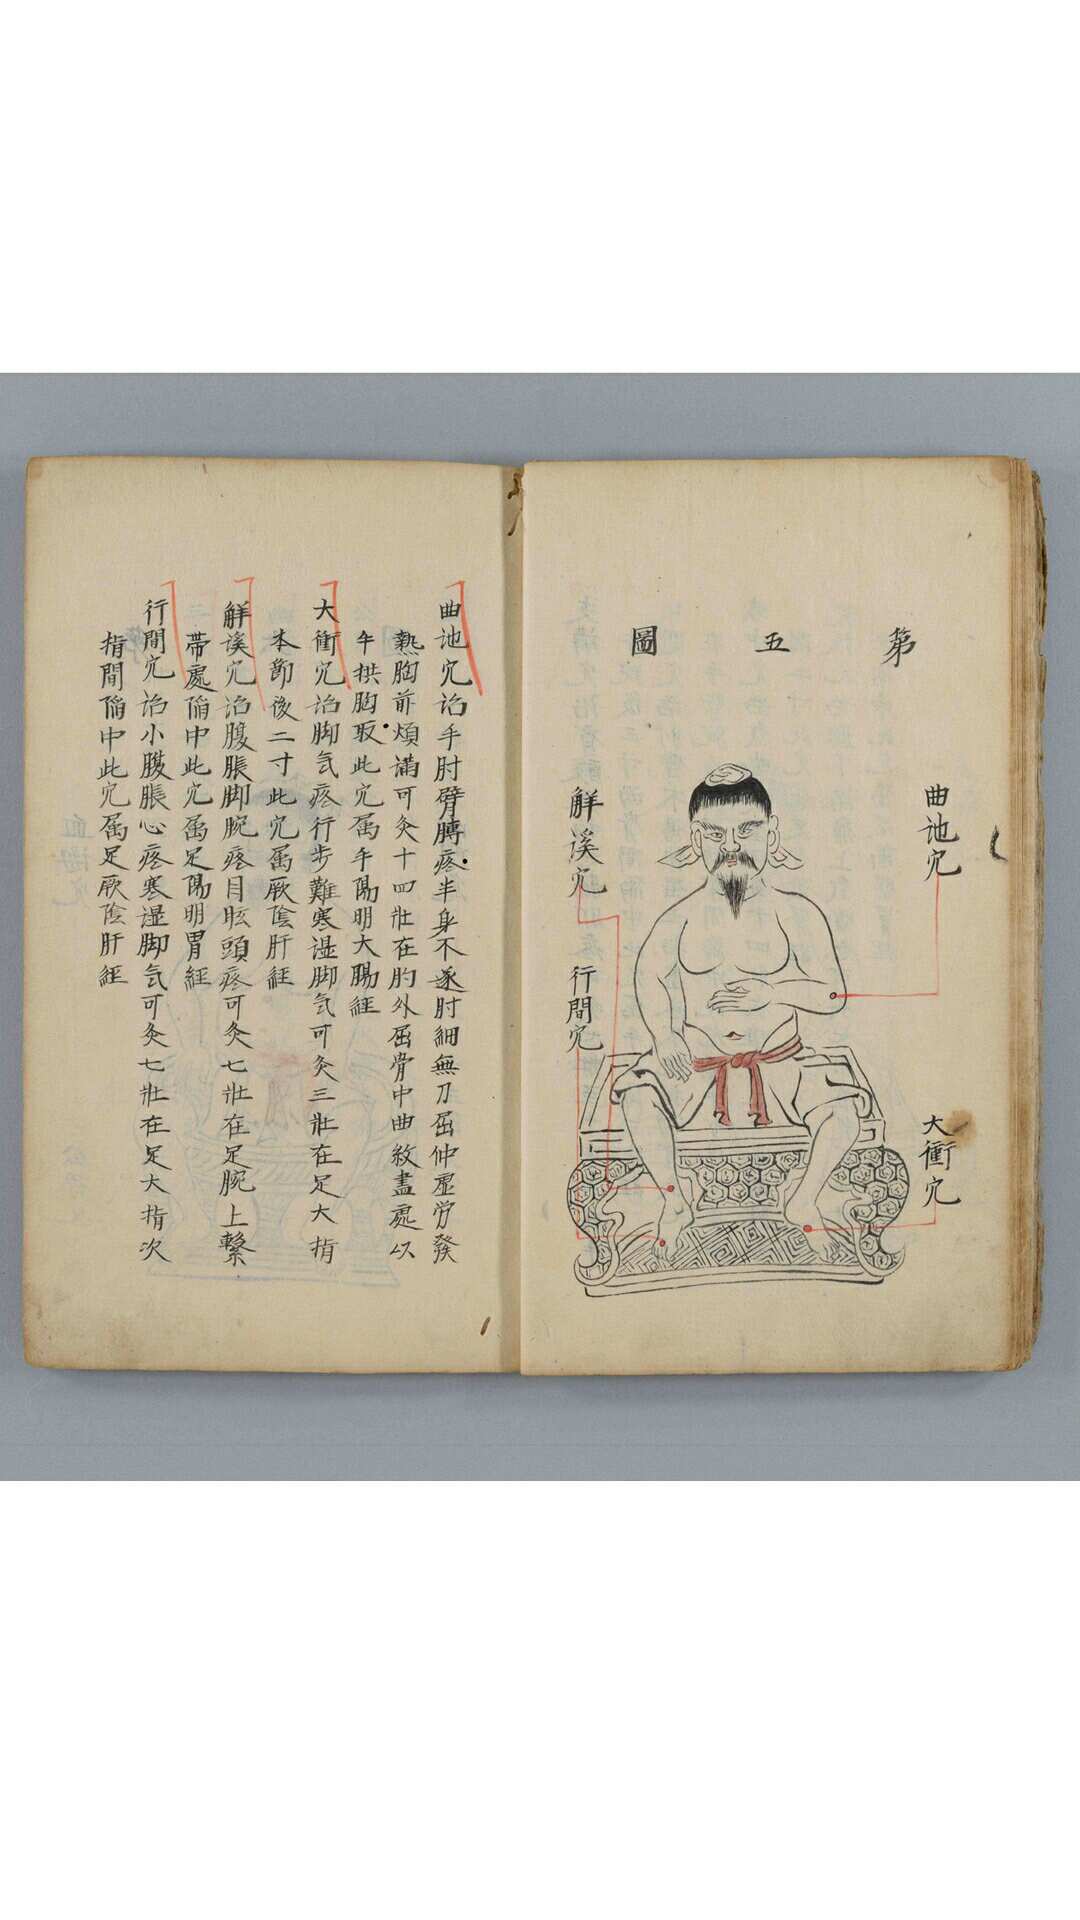 第五圖
曲池穴
大衝穴
觧溪穴
行間穴
曲池穴治手肘臂膊疼半身不遂肘細無力屈伸虛労發
熱胸前煩滿可灸十四壯在肘外屈骨中曲紋盡處以
手拱胸取此穴屬手陽明大腸経
大衝穴治脚気疼行步難寒湿脚気可灸三壯在足大指
本節後二寸此穴屬厥陰肝経
觧溪穴治腹脹脚腕疼目眩頭疼可灸七壯在足腕上繫
帶處陥中此穴属足陽明胃経
行間穴治小腹脹心疼寒湿脚気可灸七壯在足大指次
指間陥中此穴属足厥陰肝経